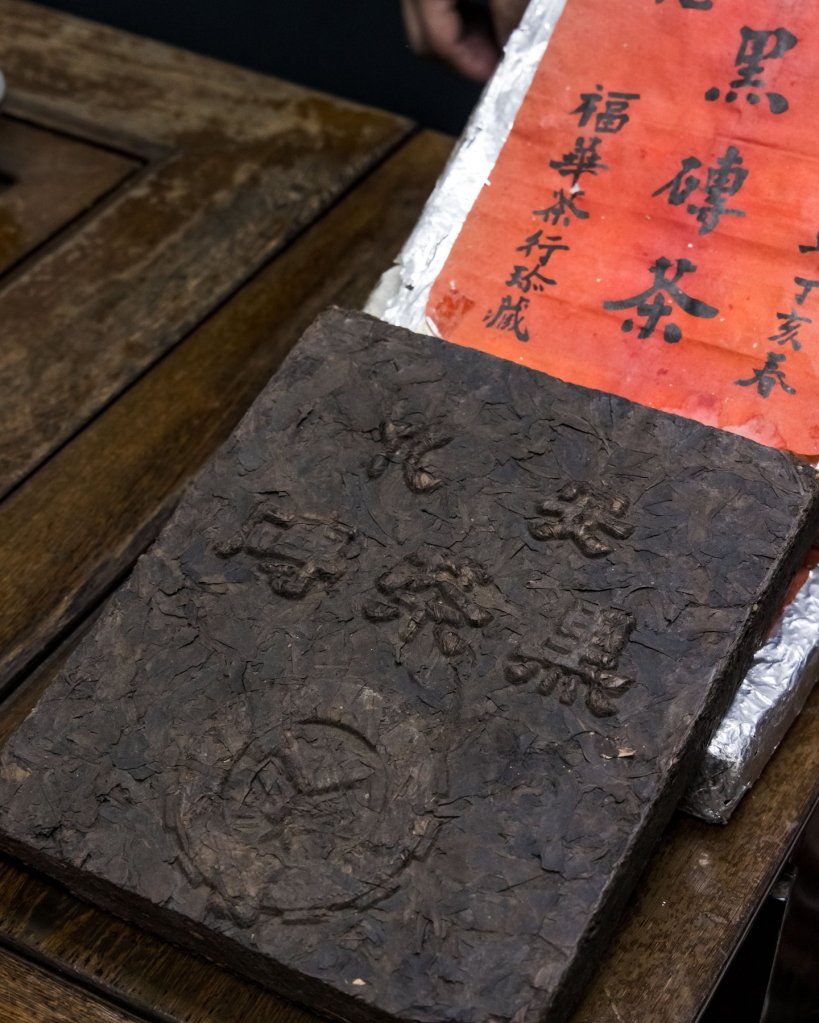 丁亥春
黑磚茶
福華茶行珍藏
安化
黑茶磚